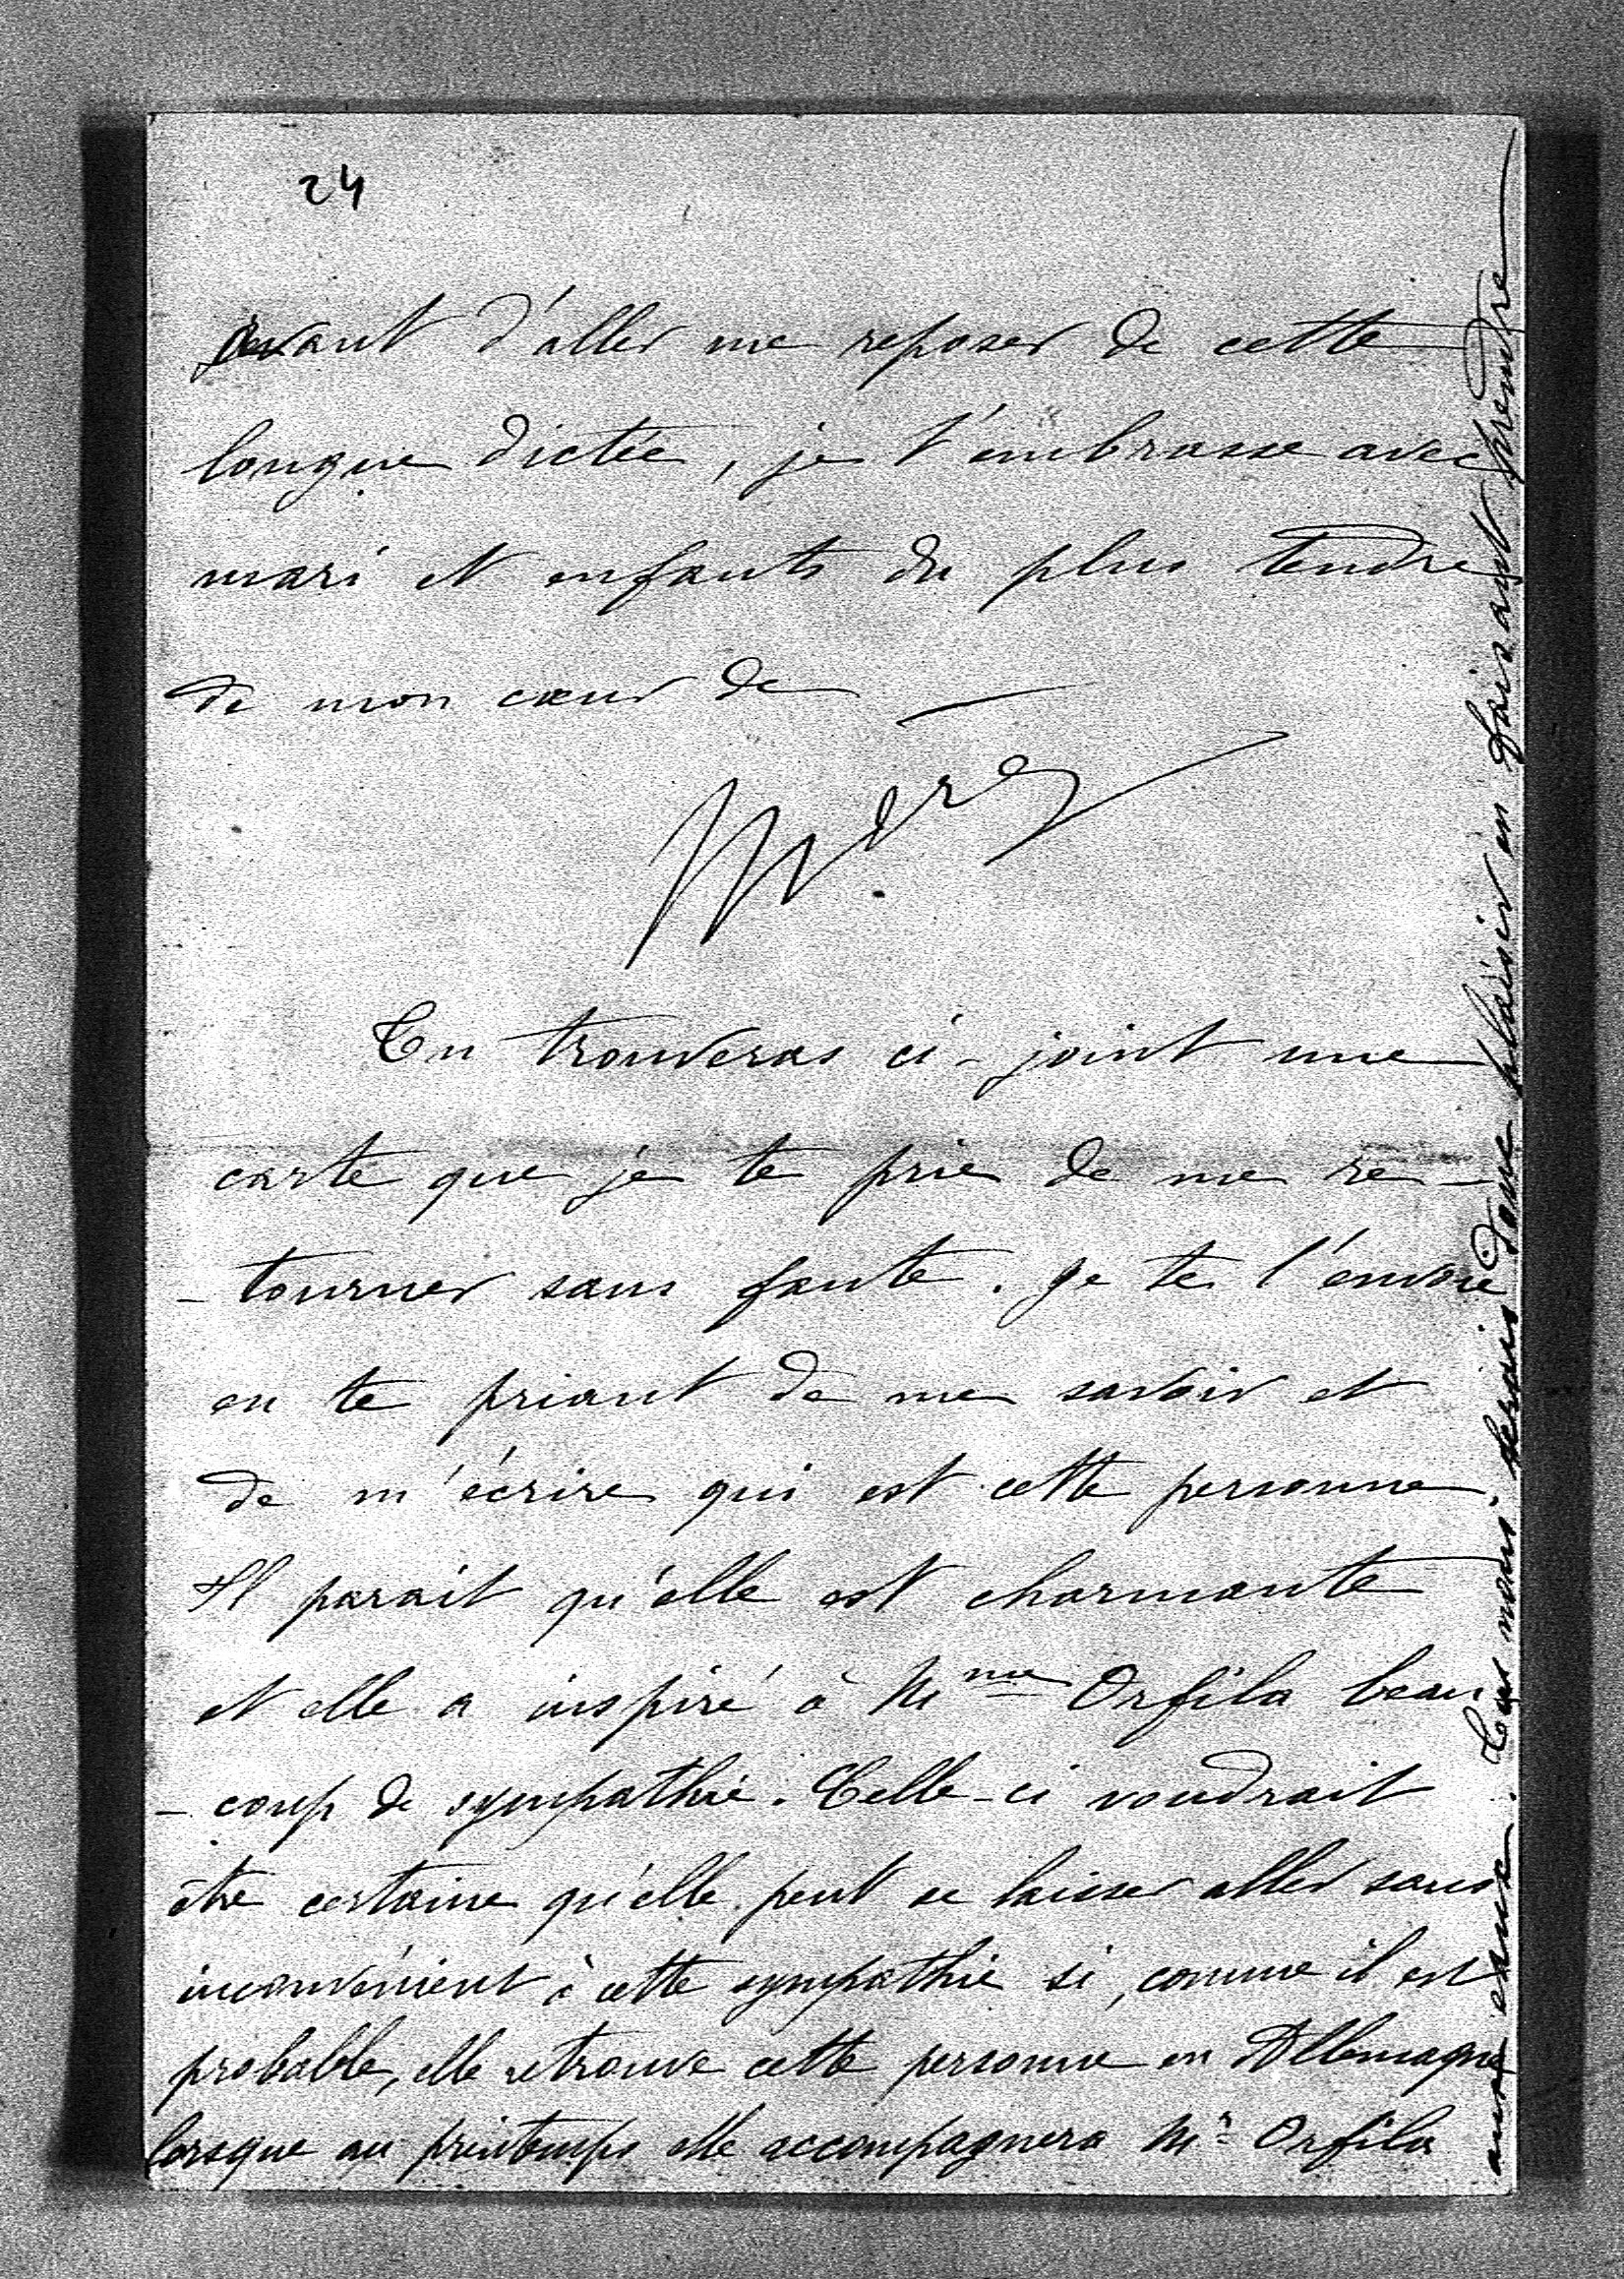 24
avant d'aller me reposer de cette
longue dictée, je t'embrasse avec
mari et enfants du plus tendre
de mon cœur de
Tu trouveras ci-joint une
carte que je te prie de me re-
-tourner sans faute. Je te l'envoie
en te priant de me savoir et
de m'écrire qui est cette personne.
Il parait qu'elle est charmante
et elle a inspiré à Mme Orfila beau
-coup de sympathie. Celle-ci voudrait
être certaine qu'elle peut se laisser aller sans
inconvénient à cette sympathie si, comme il est
probable, elle retrouve cette personne en Allemagne
lorsque au printemps elle accompagnera Mr Orfila
aux eaux. Tu nous ferais donc plaisir en faisant prendre